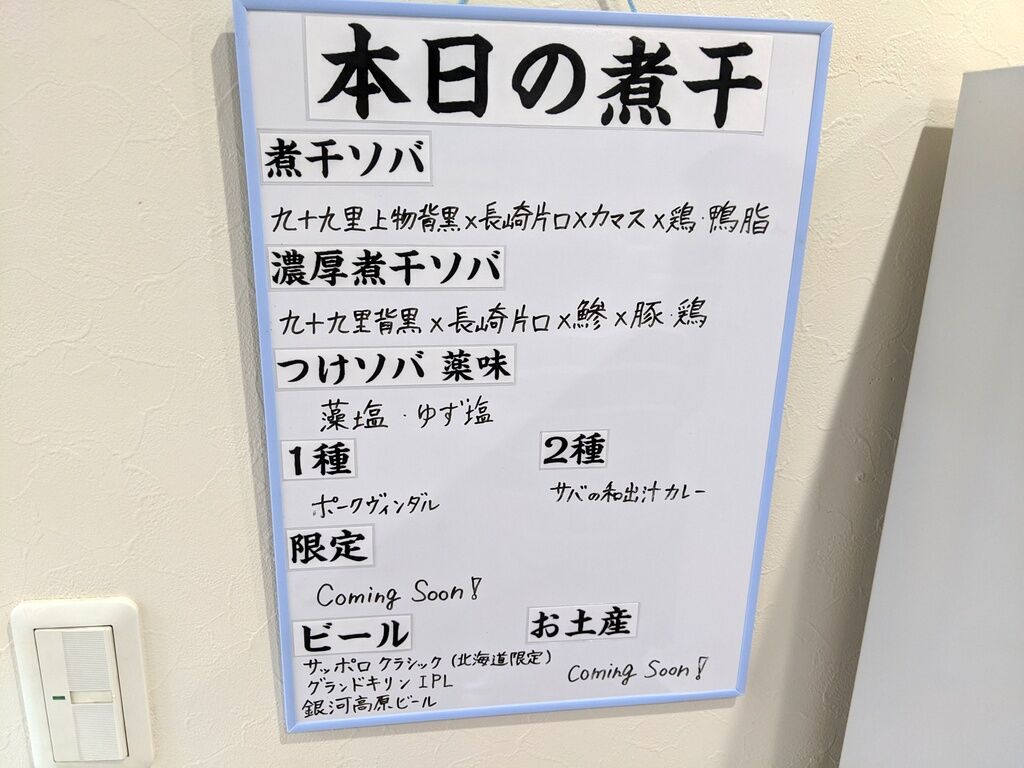 本日の煮干
煮干ソバ
九十九里上物背黒×長崎片口×カマス×鶏・鴨脂
濃厚煮干ソバ
九十九里背黒×長崎片口×鯵×豚・鶏
つけソバ 薬味
藻塩・ゆず塩
1種 2種
ポークヴィンダル サバの和出汁カレー
限定
Coming Soon!
ビール お土産
サッポロクラシック(北海道限定)
グランドキリン IPL Coming Soon!
銀河高原ビール